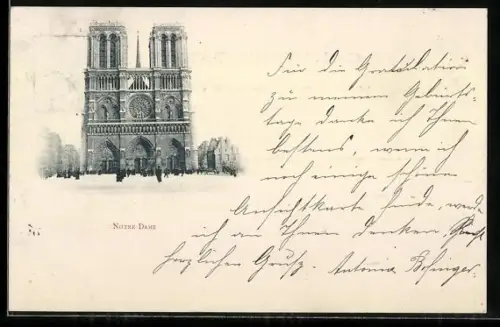 Für die Gratulation
zu meinem Geburts-
tage danke ich Ihnen
bestens, wenn ich
noch einige schöne
Ansichtskarte finde, werde
ich an Ihnen denken,
herzlichen Gruß. Antonia
NOTRE DAME